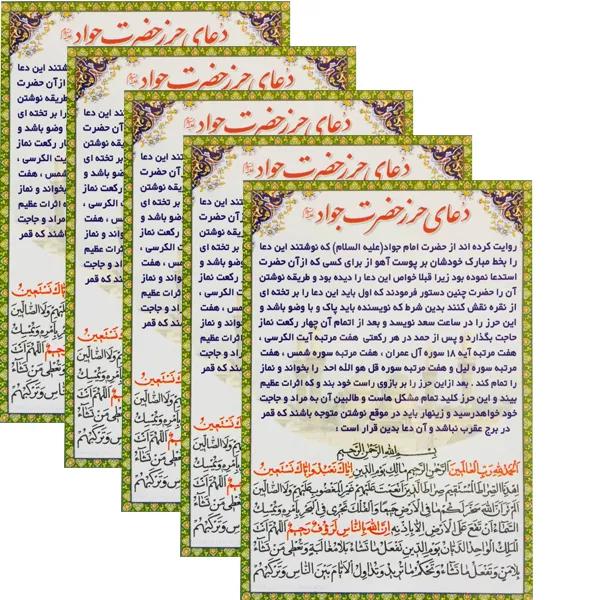 دعای حرز حضرت جواد
روایت کرده اند از حضرت امام جواد(علیه السلام) که نوشتند این دعا
را بخط مبارک خودشان بر پوست آهو از برای کسی که ازآن حضرت
استدعا نموده بود زیرا قبلا خواص این دعا را دیده بود و طریقه نوشتن
آن را حضرت چنین دستور فرمودند که اول باید این دعا را بر تخته ای
از نقره نقش کنند بدین شرط که نویسنده باید پاک و با وضو باشد و
این حرز را در ساعت سعد نویسد و بعد از اتمام آن چهار رکعت نماز
حاجت بگذارد و پس از حمد در هر رکعتی هفت مرتبه آیت الکرسی ،
هفت مرتبه آیه ۱۸ سوره آل عمران ، هفت مرتبه سوره شمس ، هفت
مرتبه سوره لیل و هفت مرتبه سوره قل هو الله احد را بخواند و نماز
را تمام کند . بعد ازاین حرز را بر بازوی راست خود بند و که اثرات عظیم
بیند و این حرز کلید تمام مشکل هاست و طالبین آن به مراد و حاجت
خود خواهدرسید و زینهار باید در موقع نوشتن متوجه باشند که قمر
در برج عقرب نباشد و آن دعا بدین قرار است :
بسم الله الرحمن الرحیم
الحمد لله رب العالمین الرحمن الرحیم مالك یوم الدین ایاك نعبد وایاك نستعین
اهدنا الصراط المستقیم صراط الذین انعمت علیهم غیر المغضوب علیهم ولا الضالین
الم تر ان الله سخر لکم ما فی الارض جمیعا والفلك تجری فی البحر بامره ویمسك
السماء ان تقع علی الارض الا باذنه ان الله بالناس لرؤف رحیم اللهم انت
الملك الواحد الدیان یوم الدین تفعل ما تشاء بلا مغالبة وتعطی من تشاء
بلا من وتفعل ما تشاء وتحکم ما ترید وتداول الایام بین الناس وترکبهم